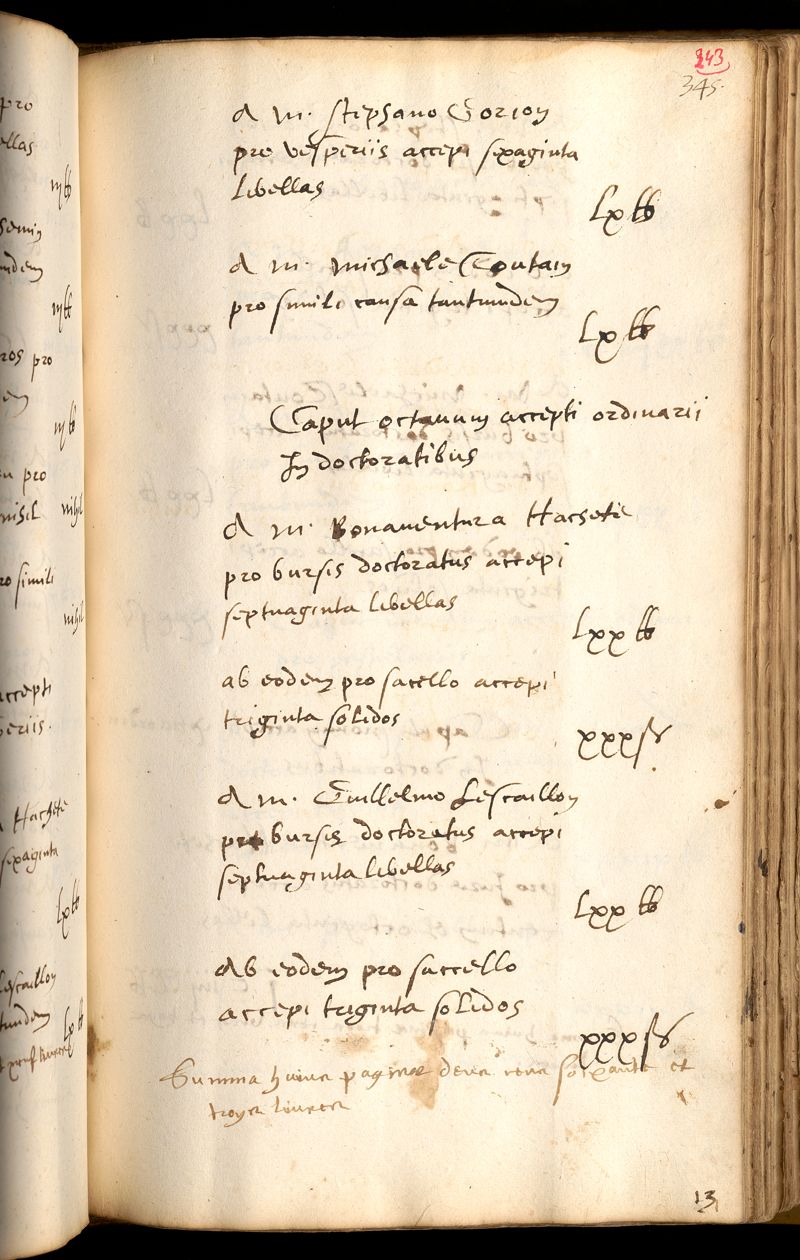 243
345.
A m. stephano Gorion
pro vesperiis accepi sexaginta
libellas
lx lb
A m. michaele Toutain
pro simili causa tantumdem
lx lb
Caput octavum accepti ordinarii
In doctoratibus
A m. Bonaventura Hachete
pro bursis doctoratus accepi
septuaginta libellas
lxx lb
ab eodem pro sacello accepi
triginta solidos
xxx s
A m. Guillelmo Lescaillon
pro bursis doctoratus accepi
septuaginta libellas
lxx lb
Ab eodem pro saccello
accepi triginta solidos
xxx s
Summa huius paginae deux cens soixante et
troys livres
13